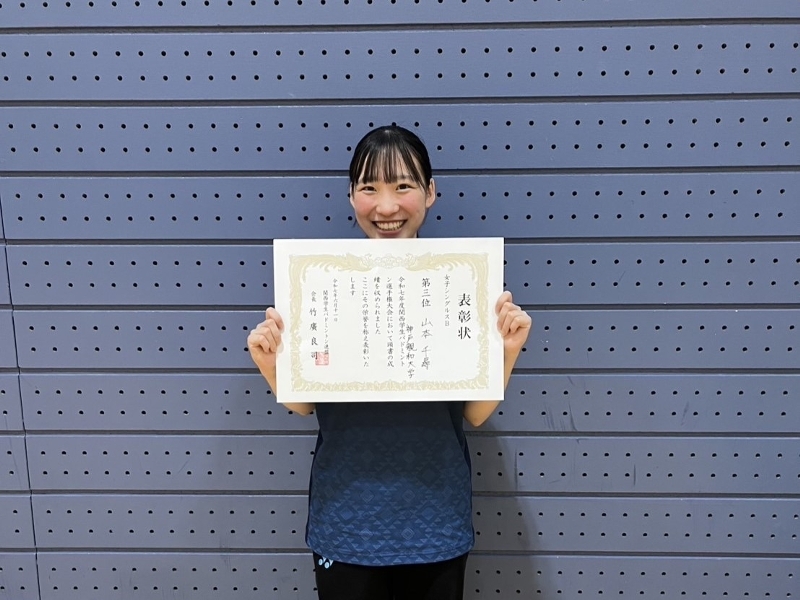 表彰状
女子シングルスB
第三位 山本 千尋
神戸親和大学
令和七年度関西学生バドミント
ン選手権大会において頭書の成
績を収められました
ここにその栄誉を称え表彰いた
します
関西学生バドミントン連盟
会長 竹廣 良司